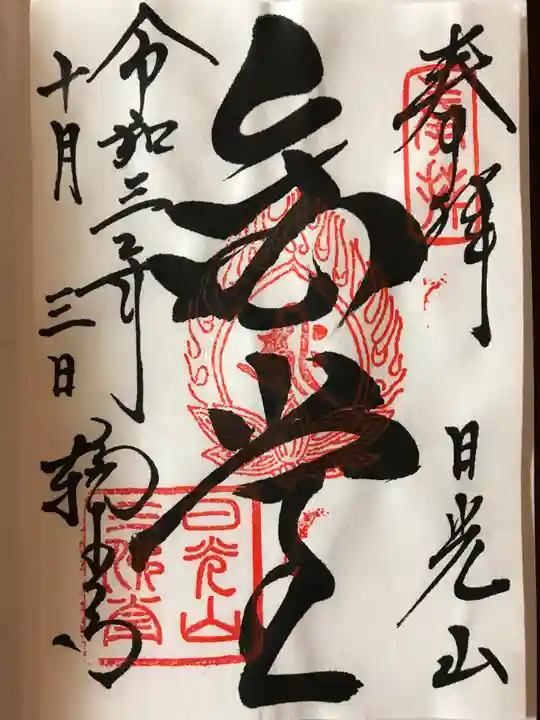 奉拝
日光山
金堂
令和三年
十月三日
輪王寺
日光山
三佛堂